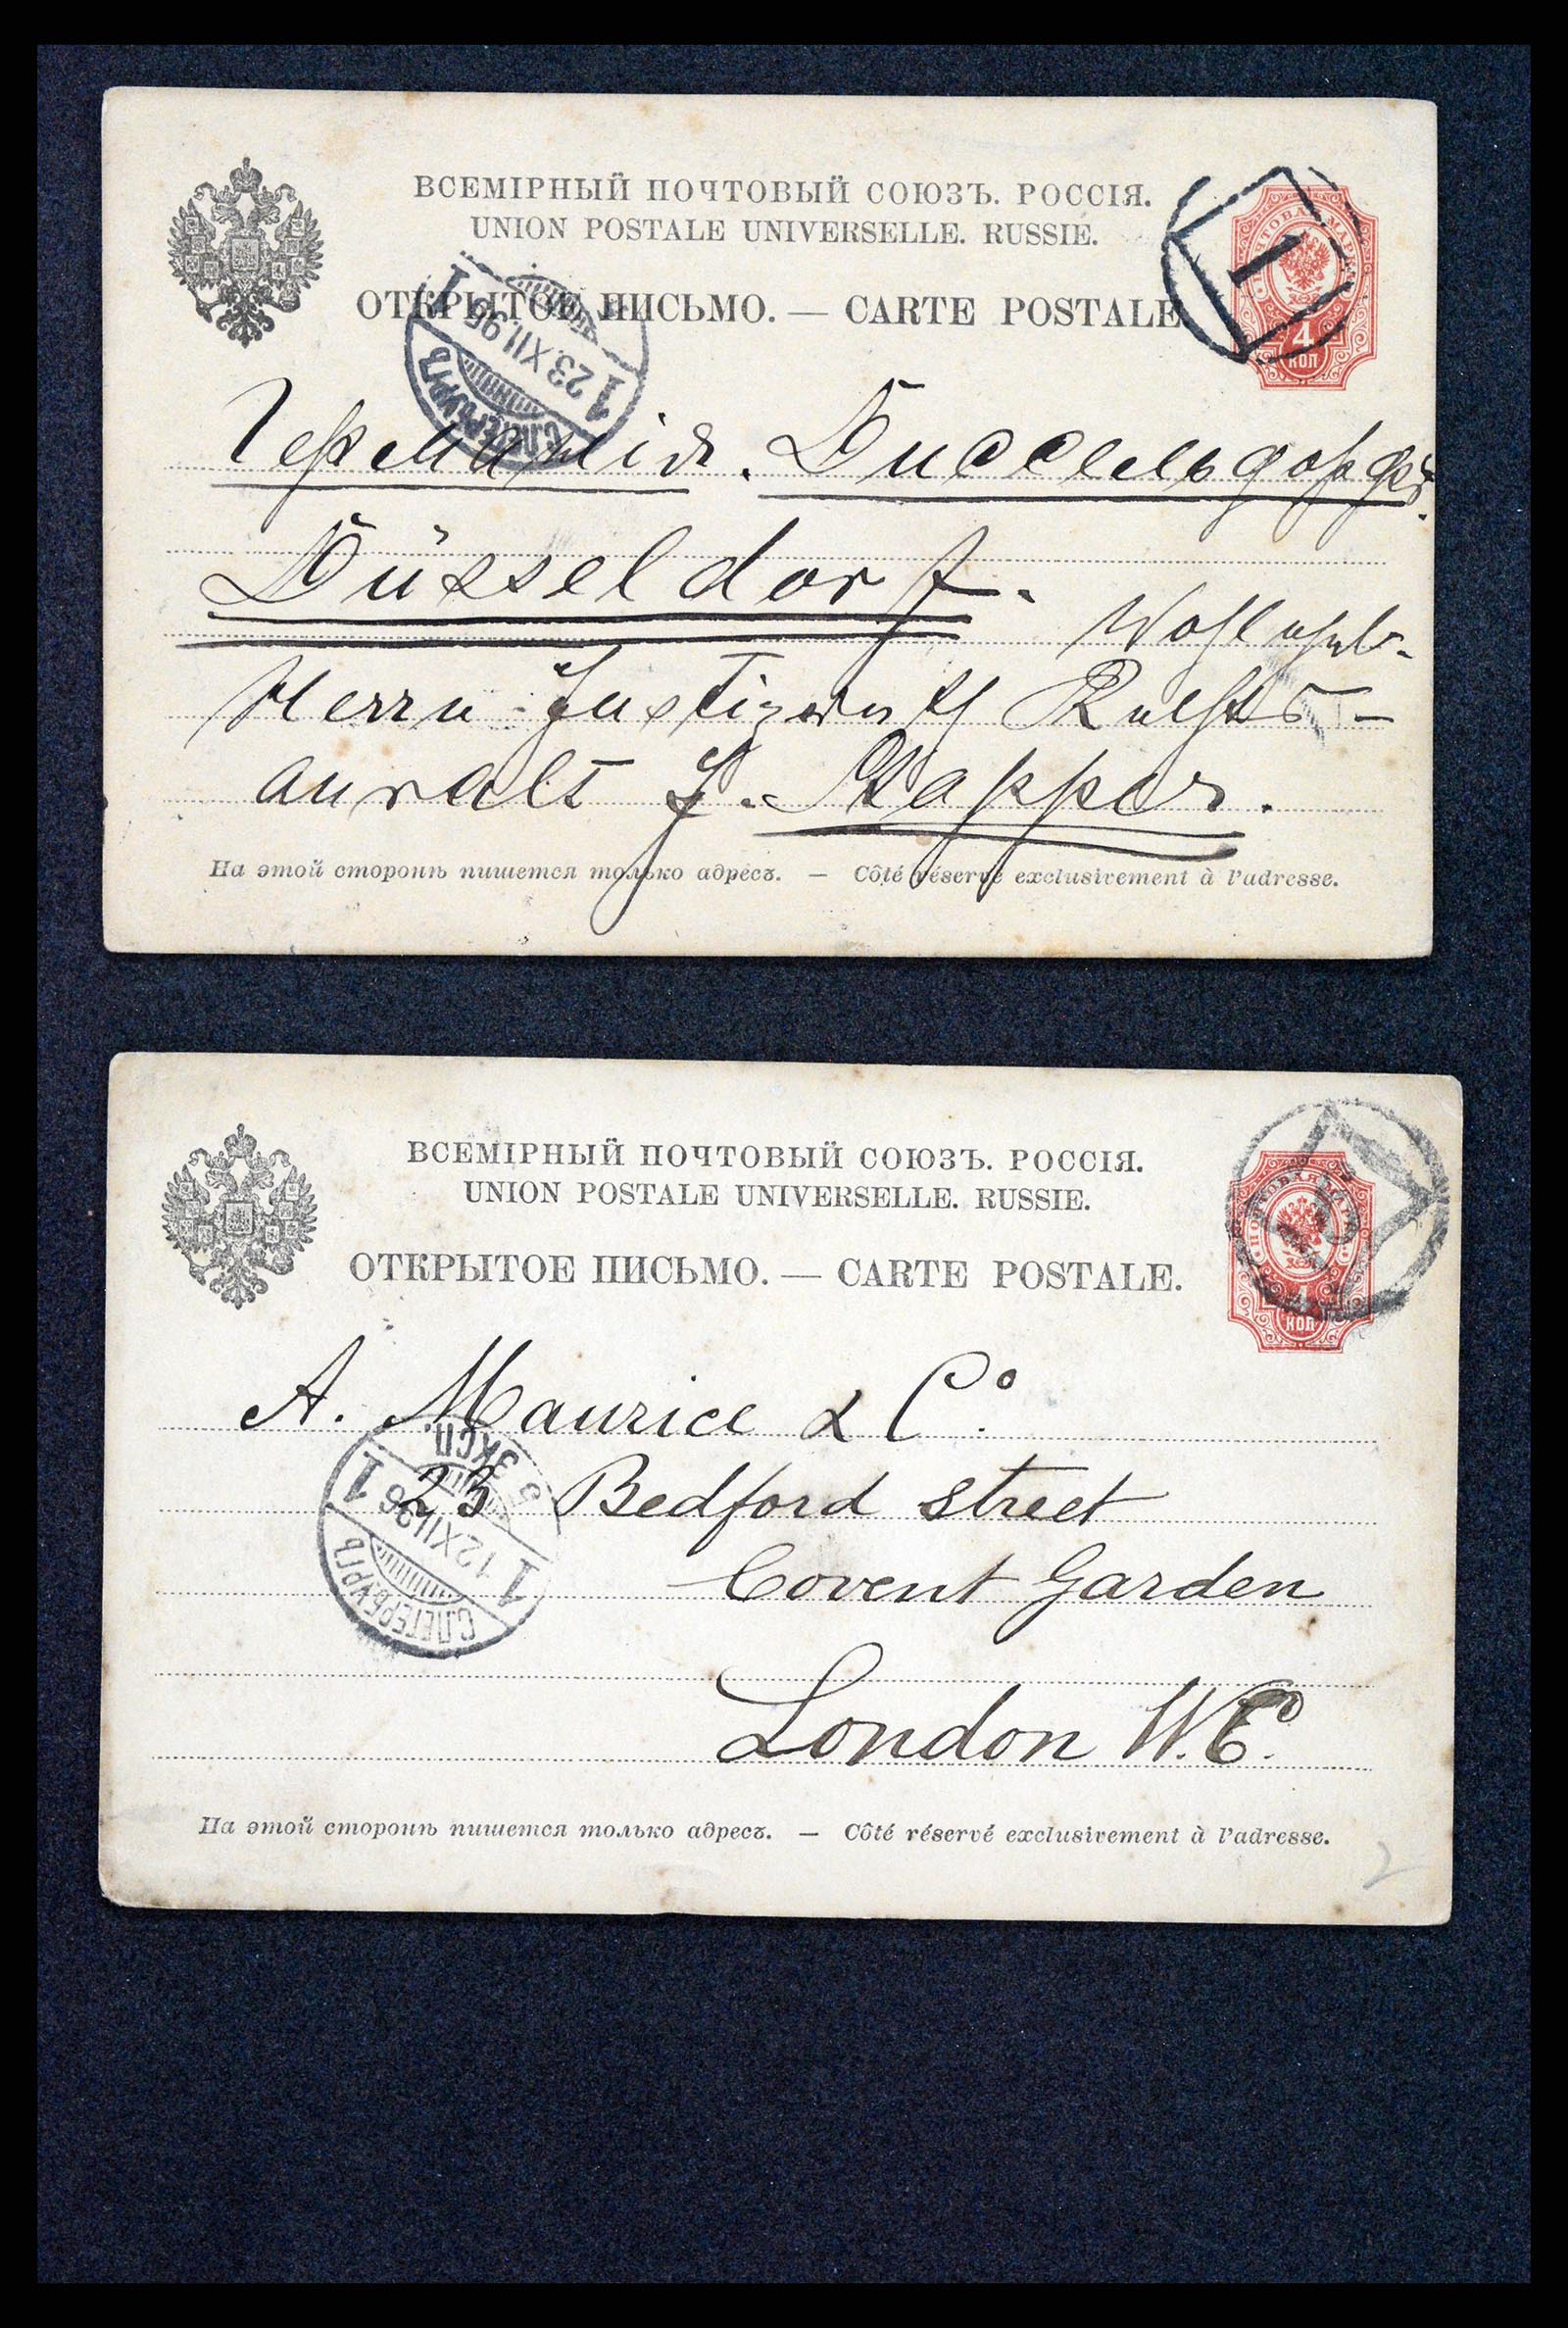 ВСЕМІРНЫЙ ПОЧТОВЫЙ СОЮЗЪ. РОССІЯ.
UNION POSTALE UNIVERSELLE. RUSSIE.
ОТКРЫТОЕ ПИСЬМО. — CARTE POSTALE.
ПОЧТОВАЯ МАРКА
4
КОП
1
С.ПЕТЕРБУРГЪ
1 23.XII.95 1
Германія. Дюссельдорфъ.
Düsseldorf.
Wohlgeb.
Herrn Justizrath Rechts-
anwalt J. Kapper.
На этой сторонѣ пишется только адресъ. — Côté réservé exclusivement à l'adresse.
ВСЕМІРНЫЙ ПОЧТОВЫЙ СОЮЗЪ. РОССІЯ.
UNION POSTALE UNIVERSELLE. RUSSIE.
ОТКРЫТОЕ ПИСЬМО. — CARTE POSTALE.
КОП
A. Maurice & Co.
23 Bedford street
Covent Garden
London W.C.
С.ПЕТЕРБУРГЪ
1 12XII96 1
ЭКСП.
На этой сторонѣ пишется только адресъ. — Côté réservé exclusivement à l'adresse.
2